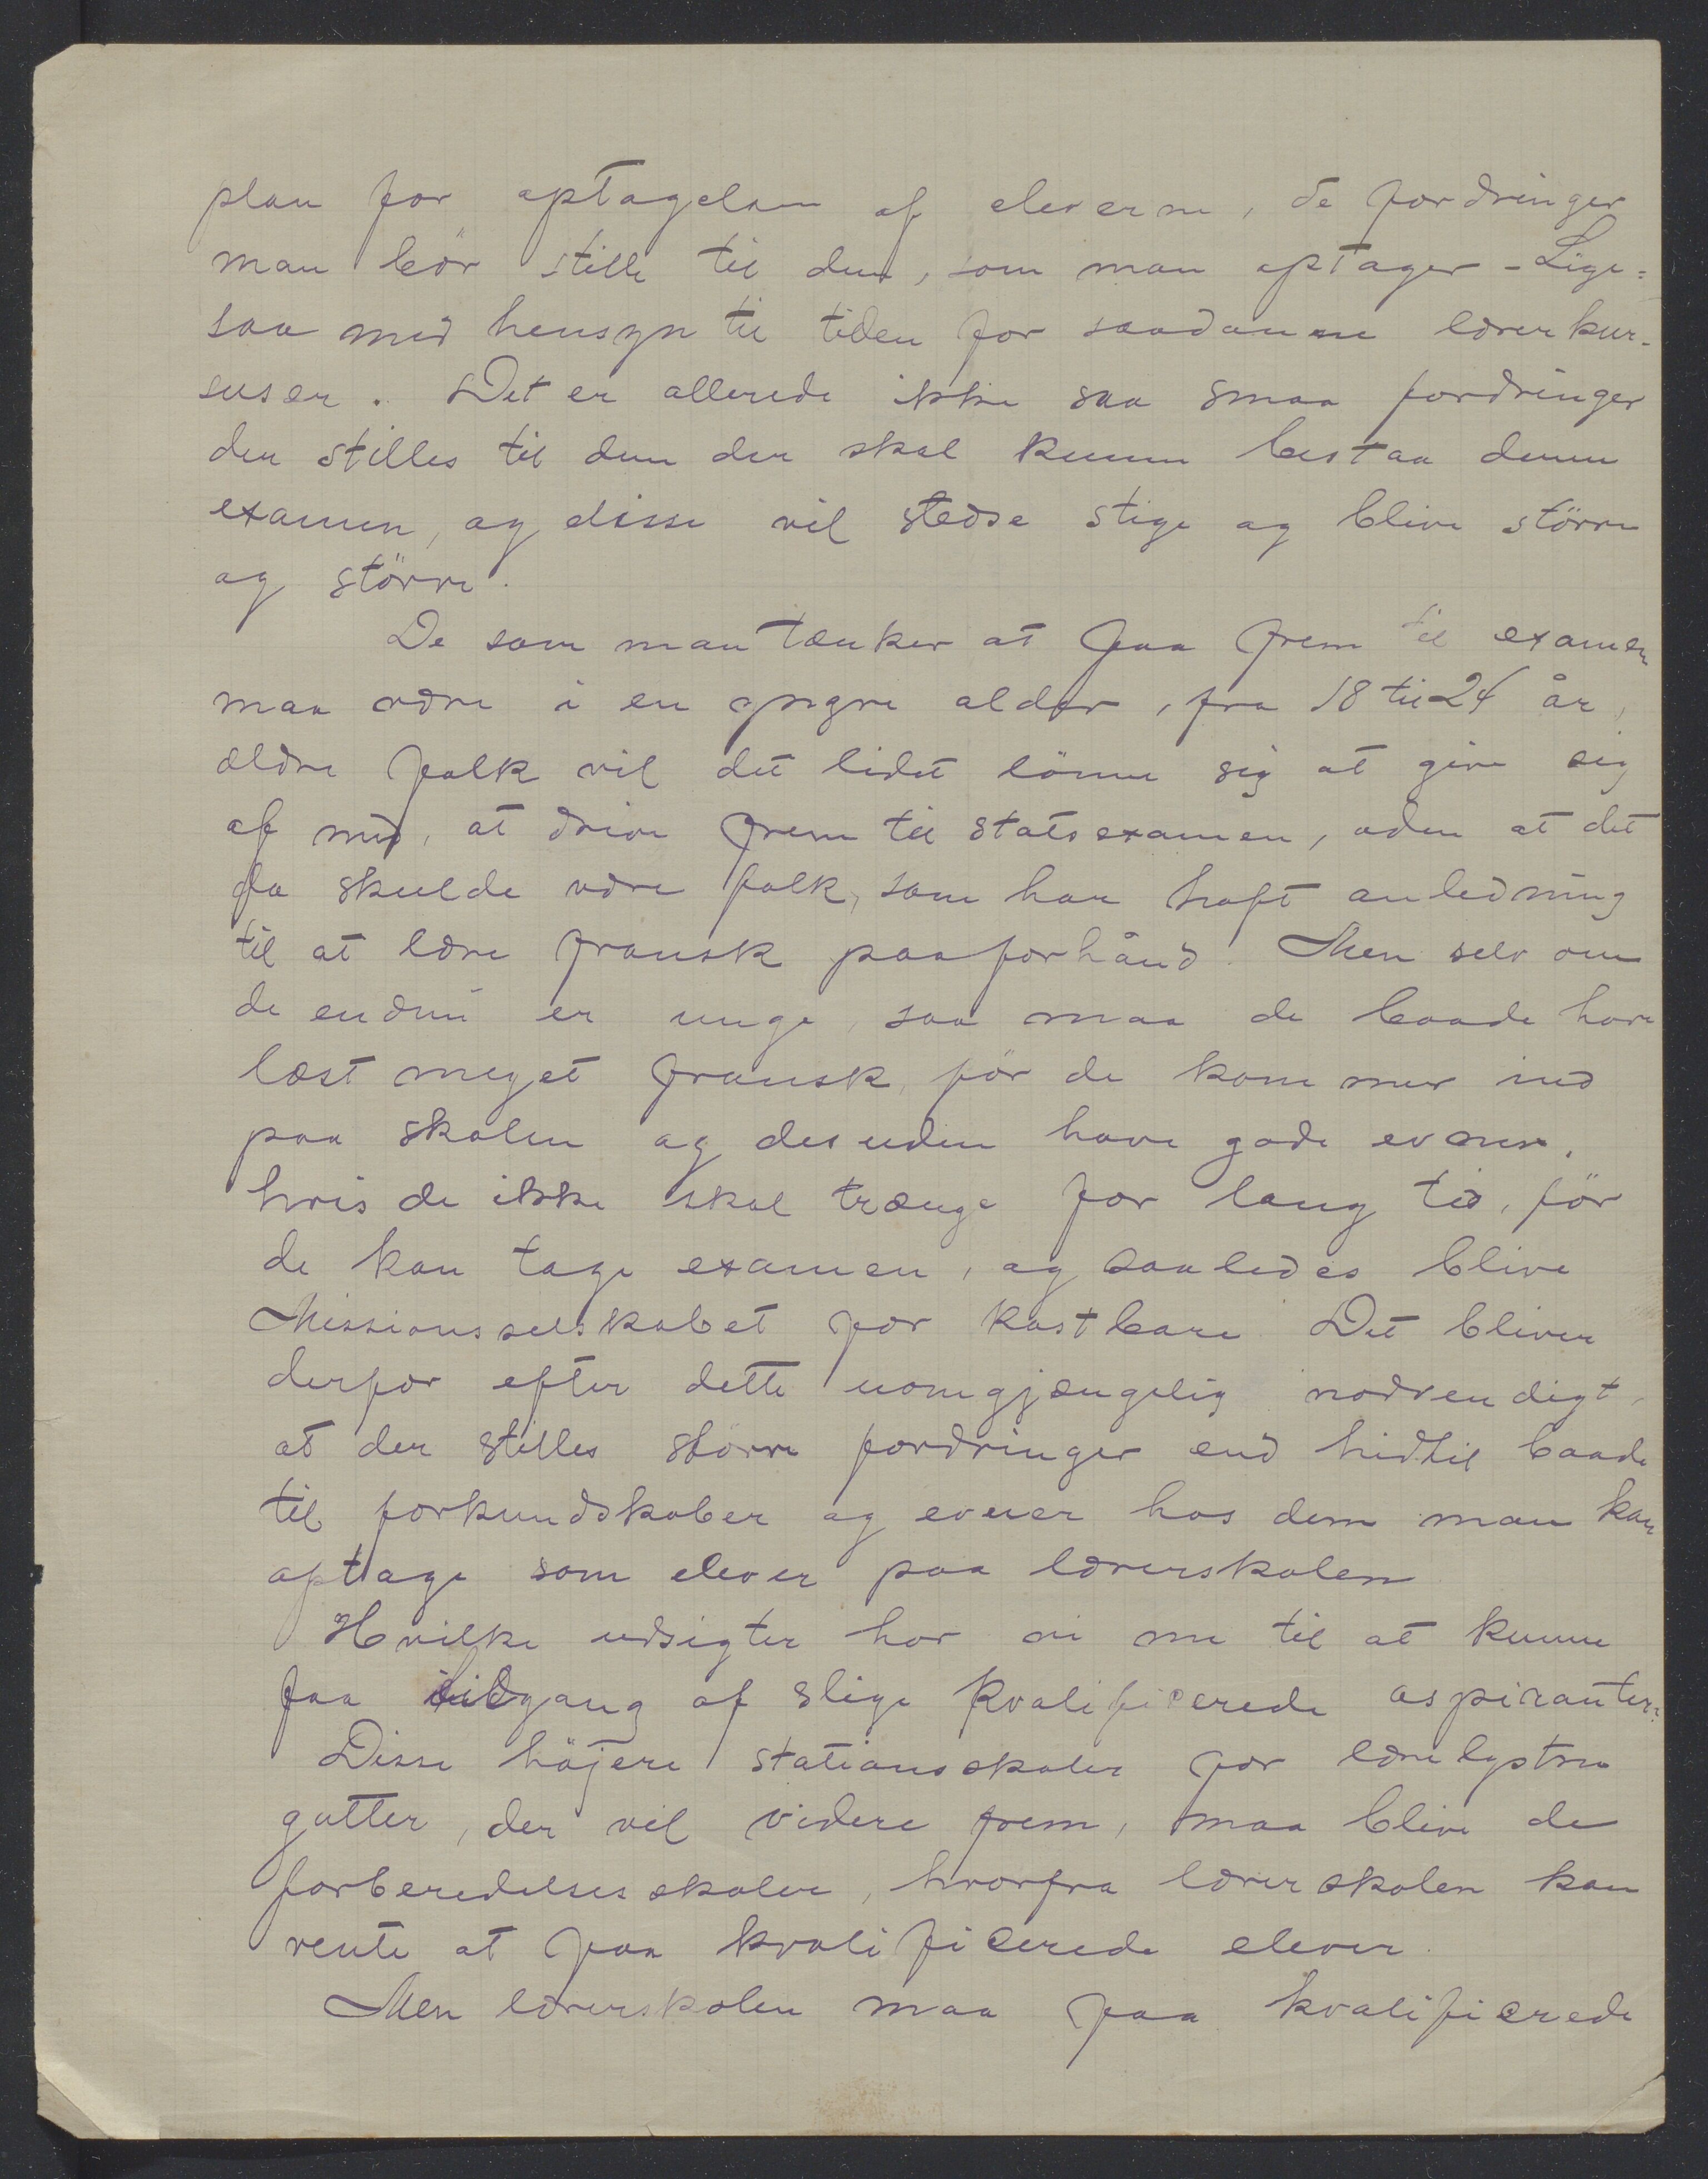 plan for optagelsen af eleverne, de fordringer
man bör stille til dem, som man optager - Lige=
saa med hensyn til tiden for saadanne lærerkur-
suser. Det er allerede ikke saa smaa fordringer
der stilles til dem der skal kunne bestaa denne
examen, og disse vil stedse stige og blive större
og större.
De som man tænker at faa frem til examen
maa være i en yngre alder, fra 18 til 24 år,
ældre folk vil det lidet lönne sig at give sig
af med, at drive frem til statsexamen, uden at det
da skulde være folk, som har haft anledning
til at lære fransk paaforhånd. Men selv om
de endnu er unge, saa maa de baade have
læst meget fransk, för de kommer ind
paa skolen og desuden have gode evner,
hvis de ikke skal trænge for lang tid, för
de kan tage examen, og saaledes blive
Missionsselskabet for kostbare. Det bliver
derfor efter dette uomgjængelig nødvendigt,
at der stilles större fordringer end hidtil baade
til forkundskaber og evner hos dem man kan
optage som elever paa lærerskolen
Hvilke udsigter har vi nu til at kunne
faa tilgang af slige kvalificerede aspiranter?
Disse höjere stationsskoler for lærelystne
gutter, der vil videre frem, maa blive de
forberedelsesskoler, hvorfra lærerskolen kan
vente at faa kvalificerede elever.
Men lærerskolen maa faa kvalificerede